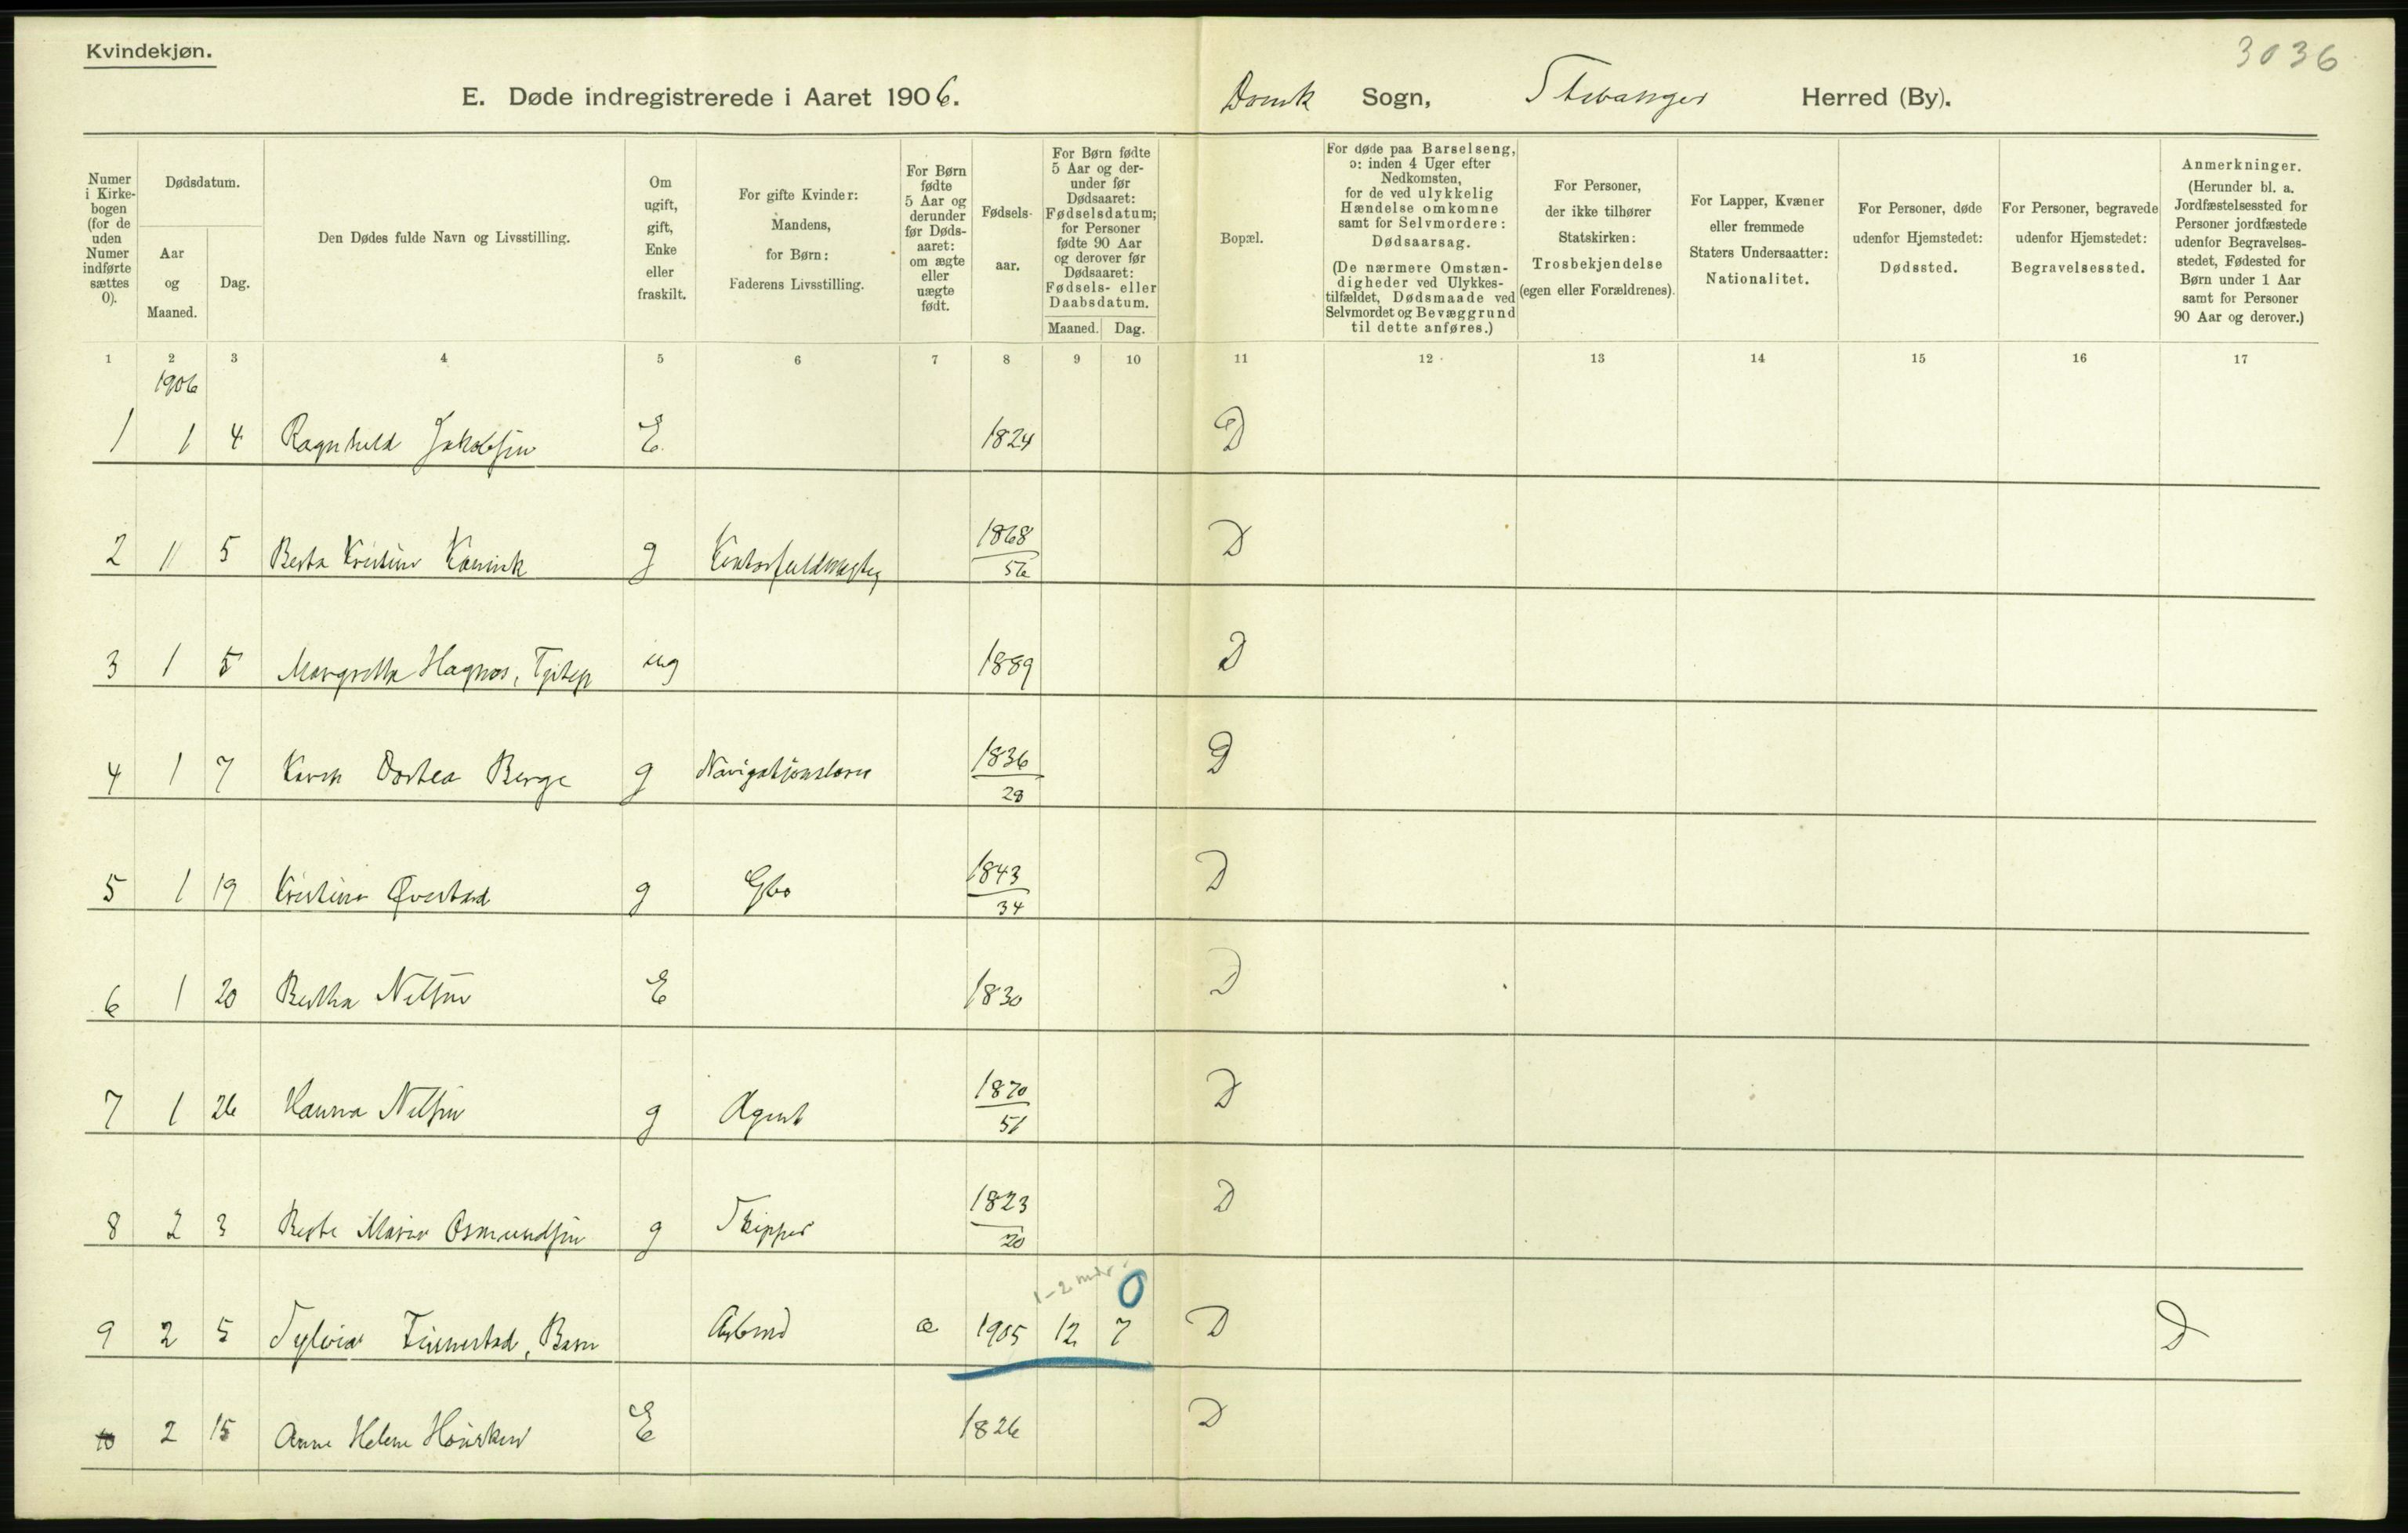 Kvindekjøn.
3036
E. Døde indregistrerede i Aaret 1906. Domk Sogn, Stavanger Herred (By).
Numer i Kirkebogen (for de uden Numer indførte sættes 0).
Dødsdatum.
Aar og Maaned.
Dag.
Den Dødes fulde Navn og Livsstilling.
Om ugift, gift, Enke eller fraskilt.
For gifte Kvinder: Mandens, for Børn: Faderens Livsstilling.
For Børn fødte 5 Aar og derunder før Dødsaaret: om ægte eller uægte født.
Fødselsaar.
For Børn fødte 5 Aar og derunder før Dødsaaret: Fødselsdatum; for Personer fødte 90 Aar og derover før Dødsaaret: Fødsels- eller Daabsdatum.
Maaned. Dag.
Bopæl.
For døde paa Barselseng, ɔ: inden 4 Uger efter Nedkomsten, for de ved ulykkelig Hændelse omkomne samt for Selvmordere: Dødsaarsag. (De nærmere Omstændigheder ved Ulykkestilfældet, Dødsmaade ved Selvmordet og Bevæggrund til dette anføres.)
For Personer, der ikke tilhører Statskirken: Trosbekjendelse (egen eller Forældrenes).
For Lapper, Kvæner eller fremmede Staters Undersaatter: Nationalitet.
For Personer, døde udenfor Hjemstedet: Dødssted.
For Personer, begravede udenfor Hjemstedet: Begravelsessted.
Anmerkninger. (Herunder bl. a. Jordfæstelsessted for Personer jordfæstede udenfor Begravelsesstedet, Fødested for Børn under 1 Aar samt for Personer 90 Aar og derover.)
1 2 3 4 5 6 7 8 9 10 11 12 13 14 15 16 17
1906
1 1 4 Ragnhild Jakobsen E. 1824 D
2 11 5 Berta Kristine g Kontorfuldmægtig 1868 D
56
3 1 5 Margrethe ug 1889 D
4 1 7 Karen Dortea Berge g Navigationslærer 1836 D
28
5 1 19 Kristine g 1843 D
34
6 1 20 Bertha Nilsen E 1830 D
7 1 26 Hanna Nilsen g Agent 1870 D
51
8 2 3 Berte Marie Osmundsen g Skipper 1823 D
20
1-2 mdr. 0
9 2 5 Sylvia Finnestad, Barn Arbmd æ 1905 12 7 D D
10 2 15 Anne Helene E 1826 D